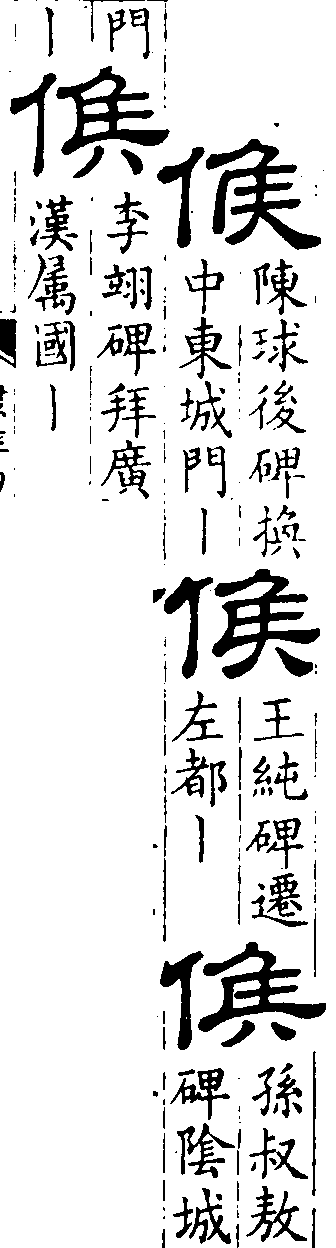 候
陳球後碑換
中東城門丨
候
王純碑遷
左都丨
候
孫叔敖
碑陰城
門
丨
候
李翊碑拜廣
漢属國丨